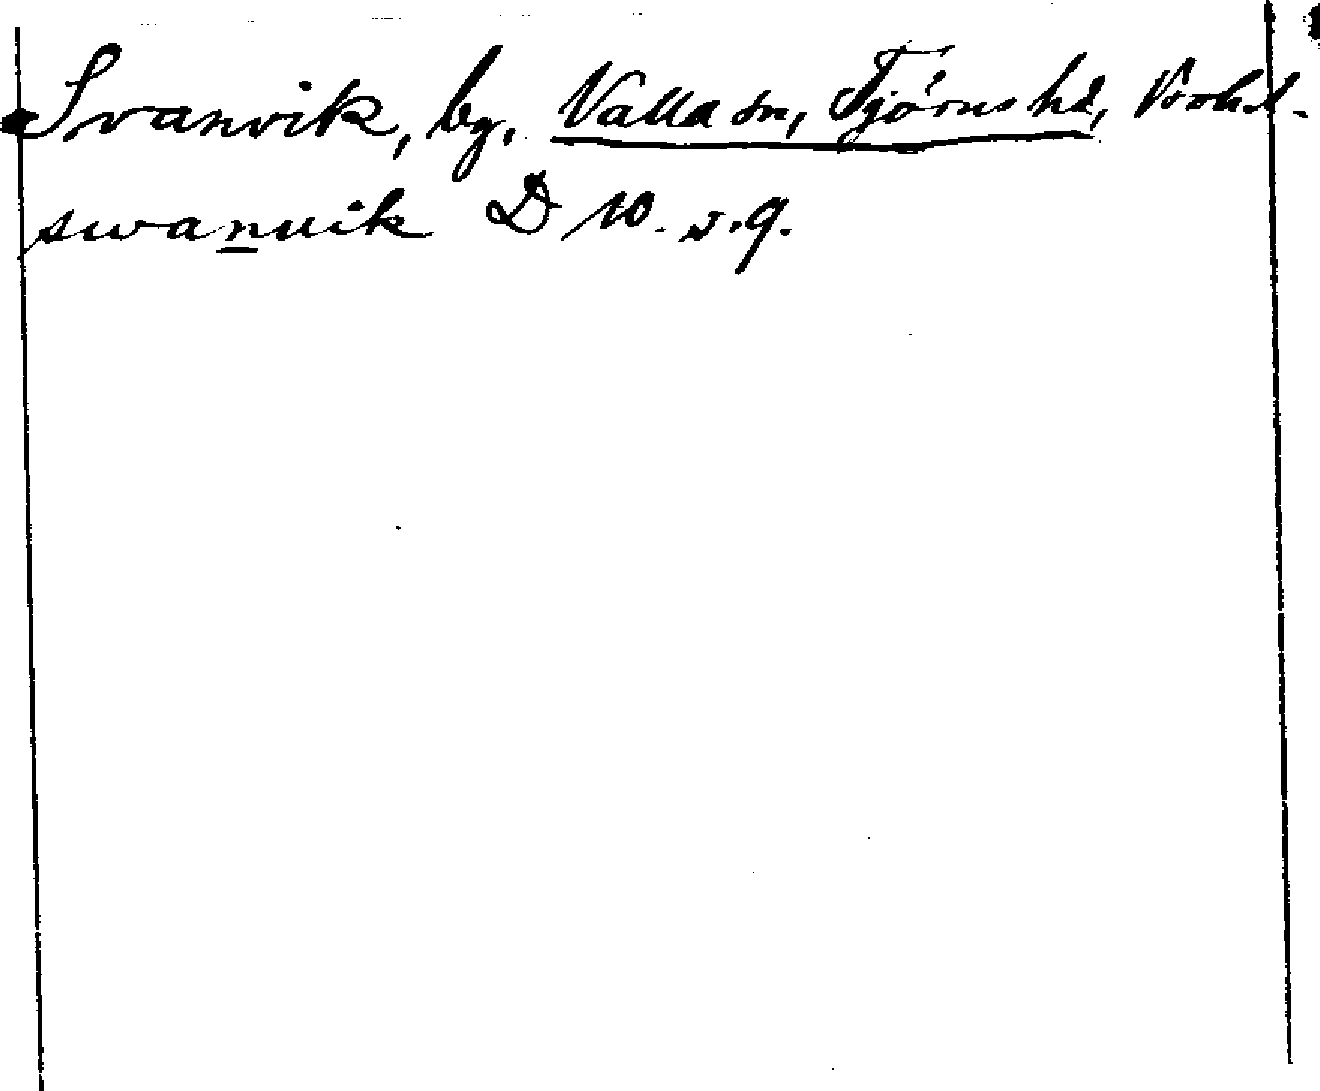 Svanvik, bg, Valla sn, Tjörns hd, Bohsl.
swanvik D 10. s. 9.